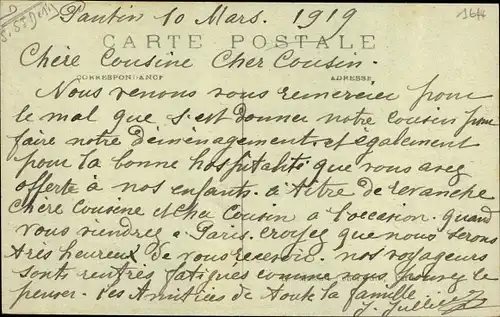 Pantin 10 Mars. 1919
S. St Denis
1644
CARTE POSTALE
Chère Cousine Cher Cousin.
CORRESPONDANCE
ADRESSE
Nous venons vous remercier pour
le mal que s'est donner notre cousin pour
faire notre déménagement. et également
pour la bonne hospitalité que vous avez
offerte à nos enfants. à titre de revanche
Chère Cousine et cher Cousin à l'occasion. quand
vous viendrez a Paris. croyez que nous serons
très heureux de vous recevoir. nos voyageurs
sont rentrés fatigués comme vous pouvez le
penser. Les Amitiés de toute la famille
J. Jullien